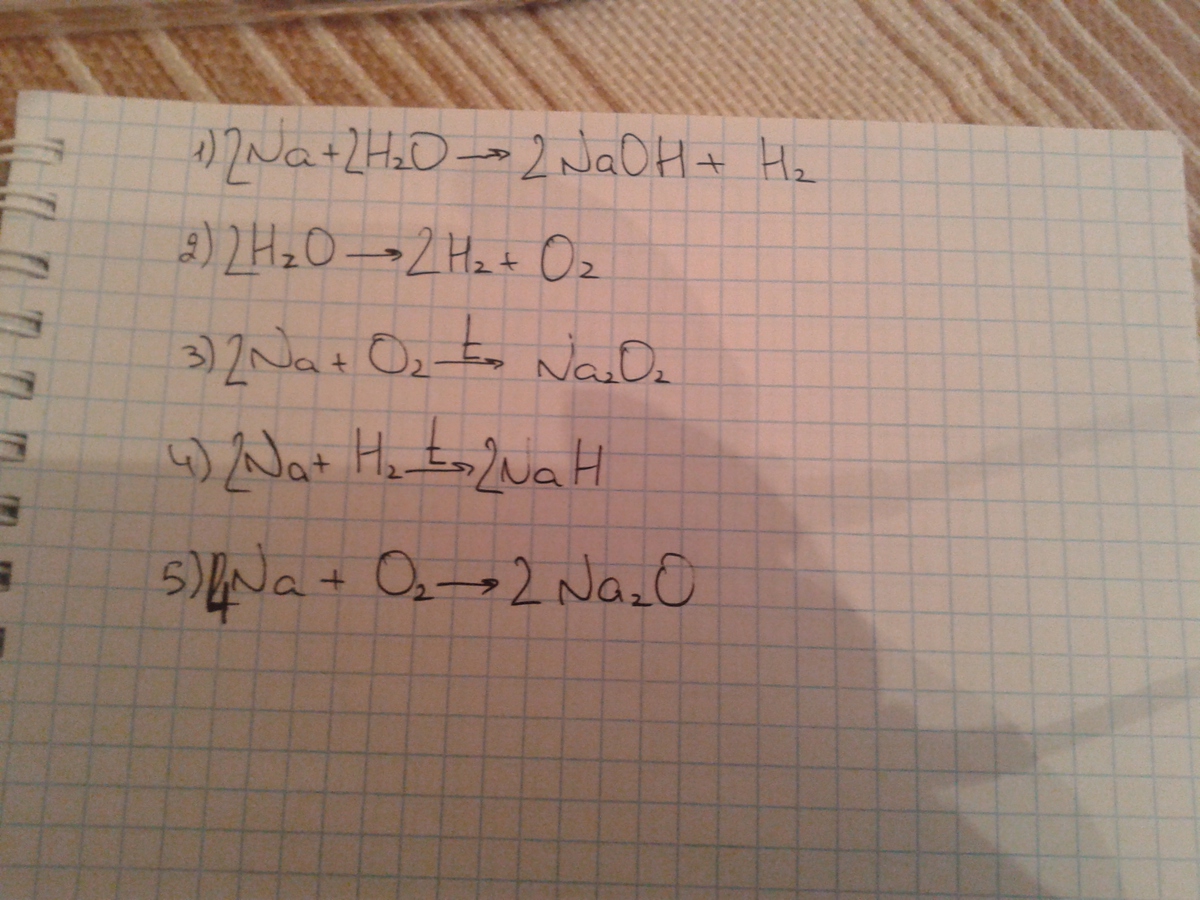 1) 2Na + 2H₂O → 2NaOH + H₂
2) 2H₂O → 2H₂ + O₂
3) 2Na + O₂ —t→ Na₂O₂
4) 2Na + H₂ —t→ 2NaH
5) 4Na + O₂ → 2Na₂O